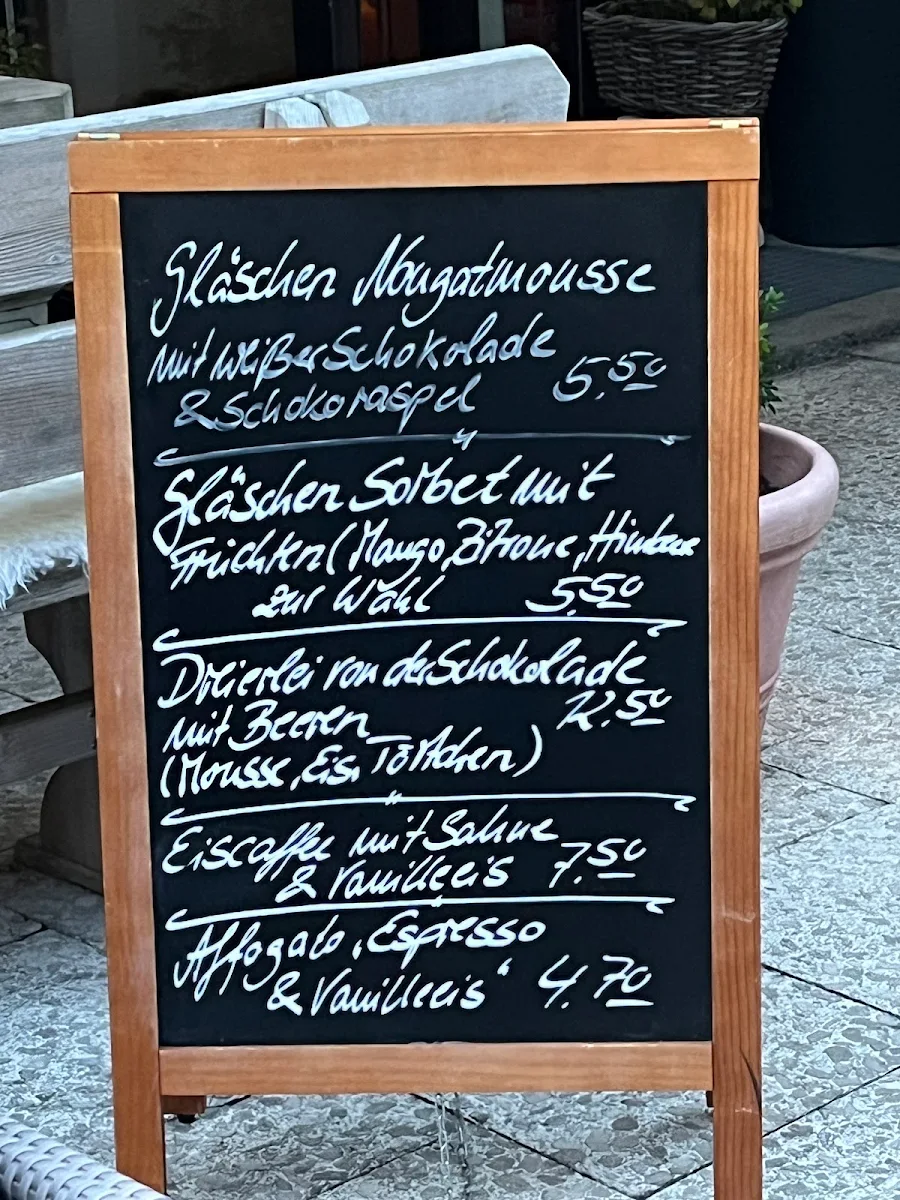 Gläschen Nougatmousse
mit weißer Schokolade
& Schokoraspel 5.50
Gläschen Sorbet mit
Früchten (Mango, Zitrone, Himbeere
zur Wahl 5.50
Dreierlei von der Schokolade
mit Beeren 12.50
(Mousse, Eis, Törtchen)
Eiscaffee mit Sahne
& Vanilleeis 7.50
Affogato "Espresso
& Vanilleeis" 4.70